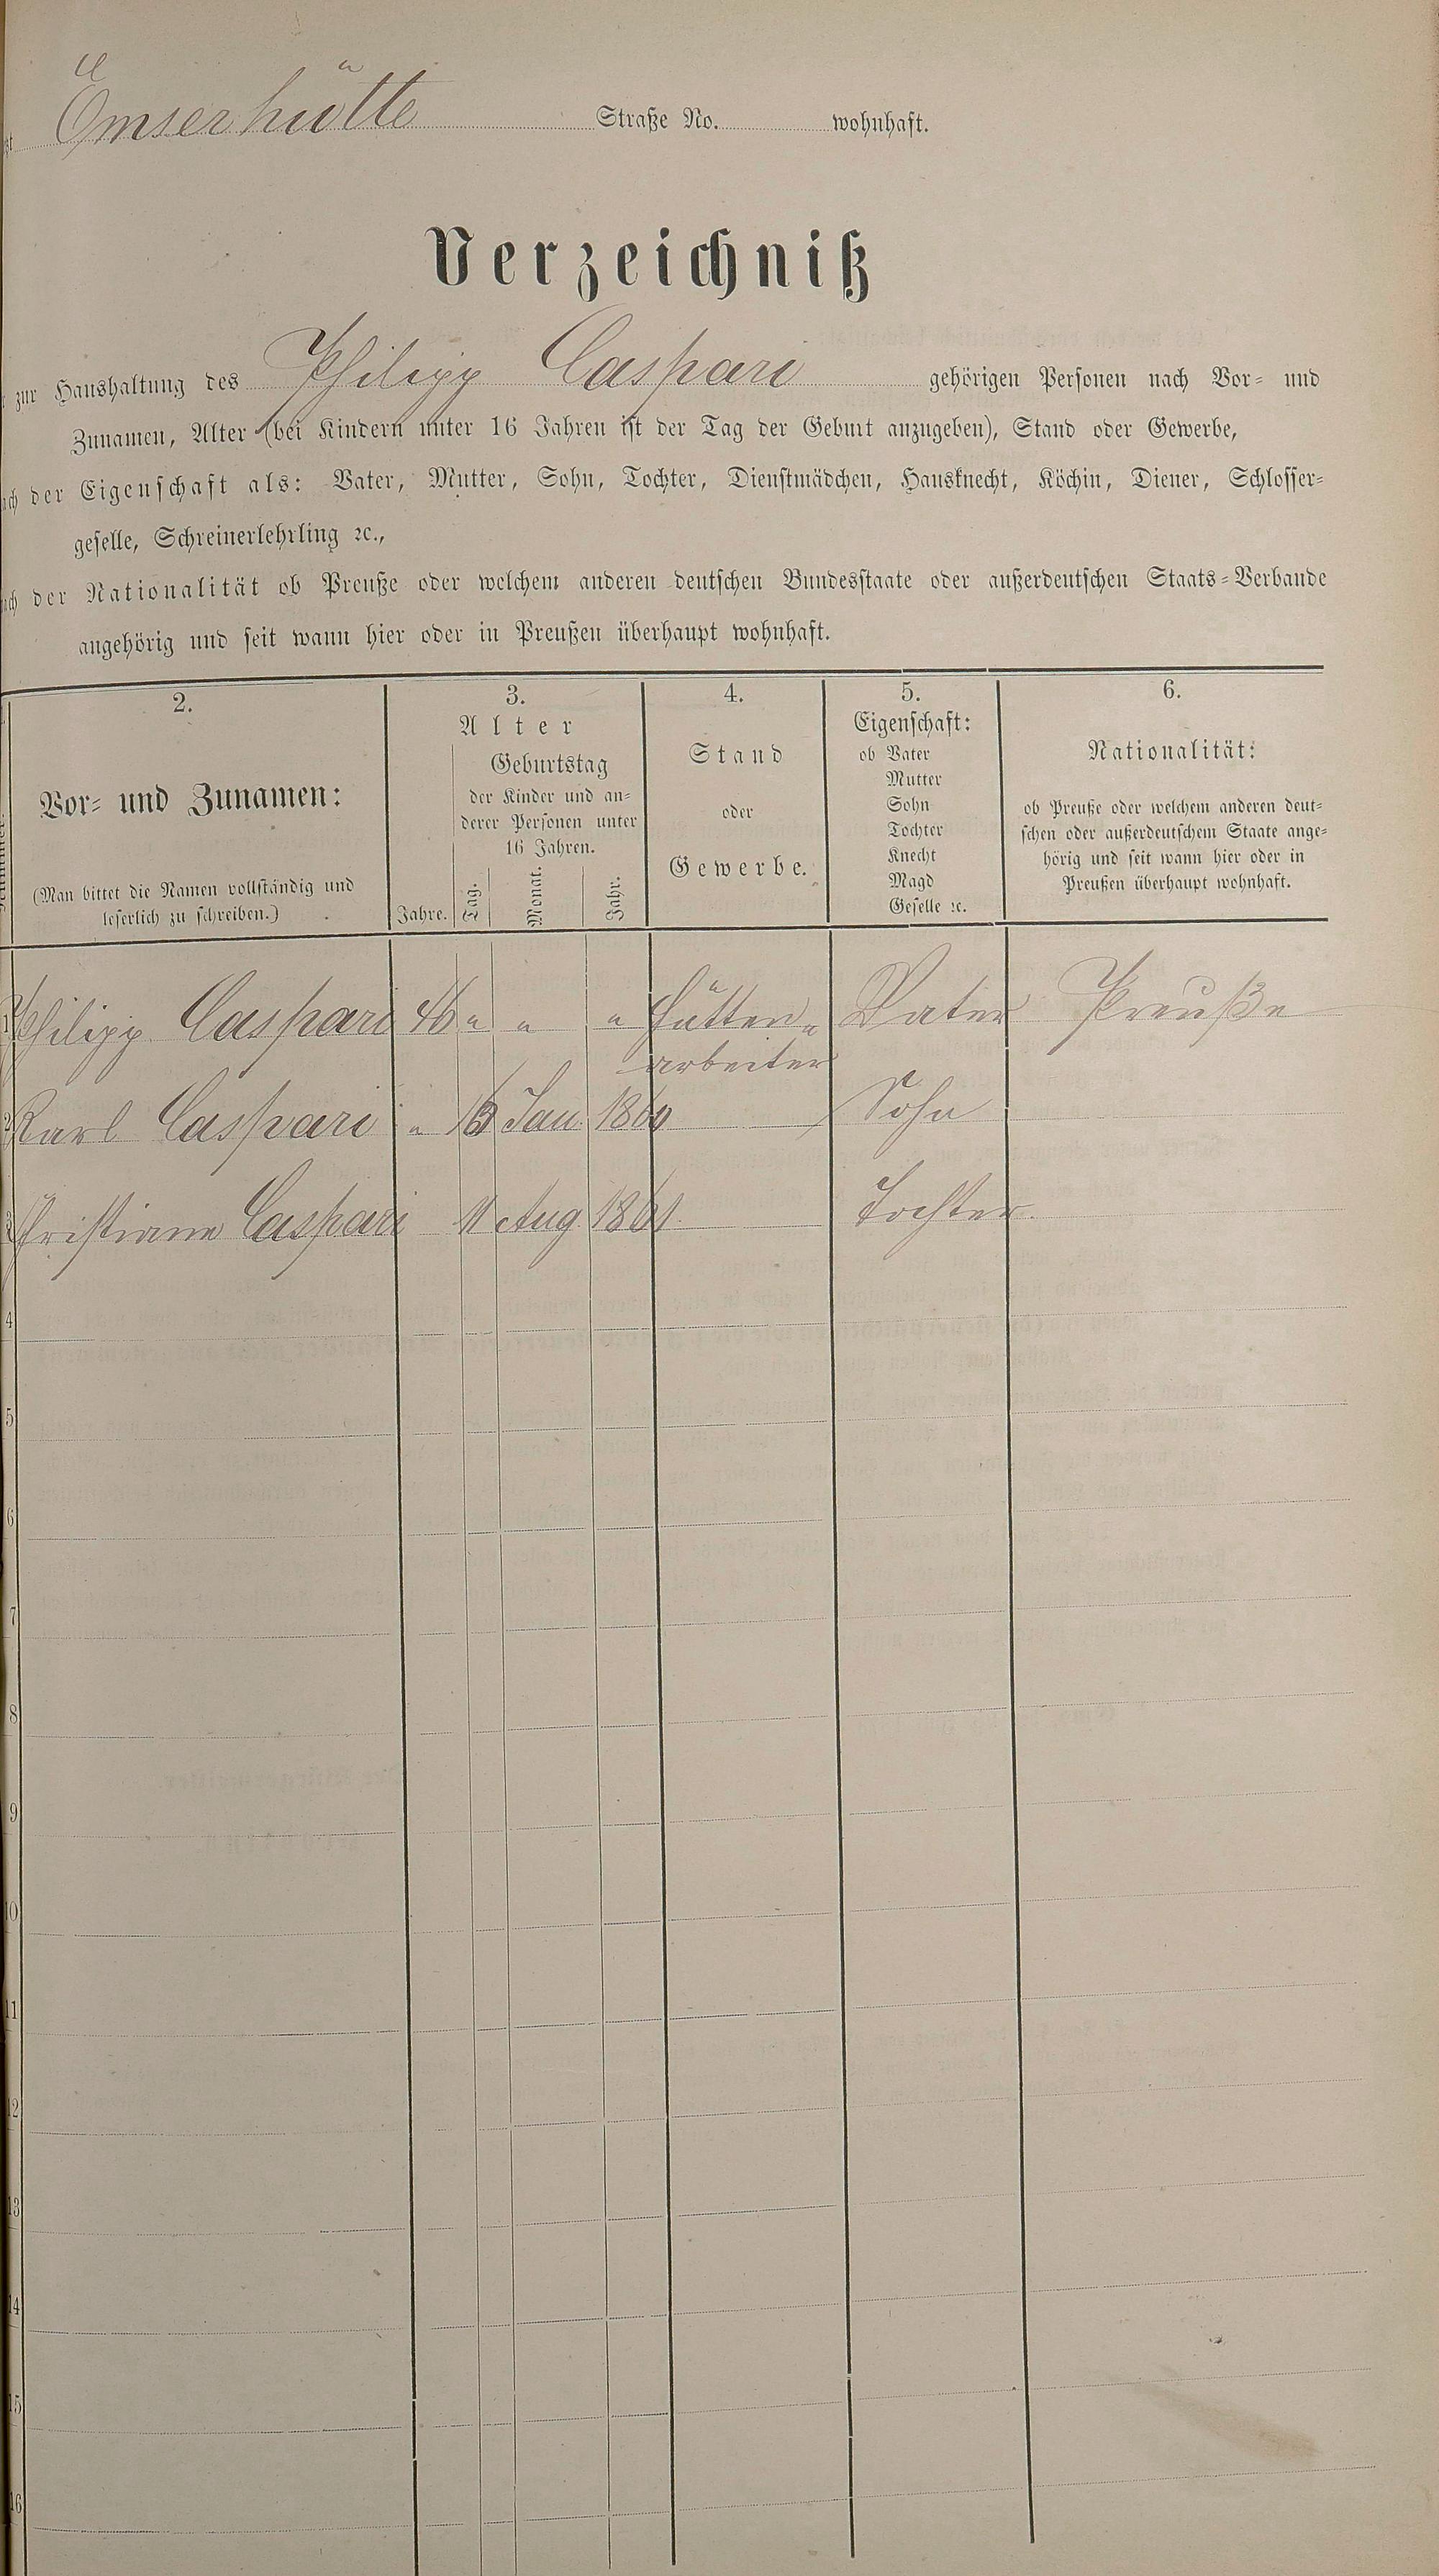 Emserhütte Straße No. wohnhaft.
Verzeichniß
zur Haushaltung des Philipp Caspari gehörigen Personen nach Vor- und
Zunamen, Alter (bei Kindern unter 16 Jahren ist der Tag der Geburt anzugeben), Stand oder Gewerbe,
der Eigenschaft als: Vater, Mutter, Sohn, Tochter, Dienstmädchen, Hausknecht, Köchin, Diener, Schlosser-
geselle, Schreinerlehrling ꝛc.,
der Nationalität ob Preuße oder welchem anderen deutschen Bundesstaate oder außerdeutschen Staats-Verbande
angehörig und seit wann hier oder in Preußen überhaupt wohnhaft.
2.
Vor- und Zunamen:
(Man bittet die Namen vollständig und
leserlich zu schreiben.)
3.
Alter
Geburtstag
der Kinder und an-
derer Personen unter
16 Jahren.
Jahre. Tag. Monat. Jahr.
4.
Stand
oder
Gewerbe.
5.
Eigenschaft:
ob Vater
Mutter
Sohn
Tochter
Knecht
Magd
Geselle ꝛc.
6.
Nationalität:
ob Preuße oder welchem anderen deut-
schen oder außerdeutschem Staate ange-
hörig und seit wann hier oder in
Preußen überhaupt wohnhaft.
1 Philipp Caspari 46 " " " Hütten- Vater Preuße
arbeiter
2 Karl Caspari " Jan. 1860 Sohn
3 Christiane Caspari 11 Aug. 1861. Tochter.
4
5
6
7
8
9
10
11
12
13
14
15
16